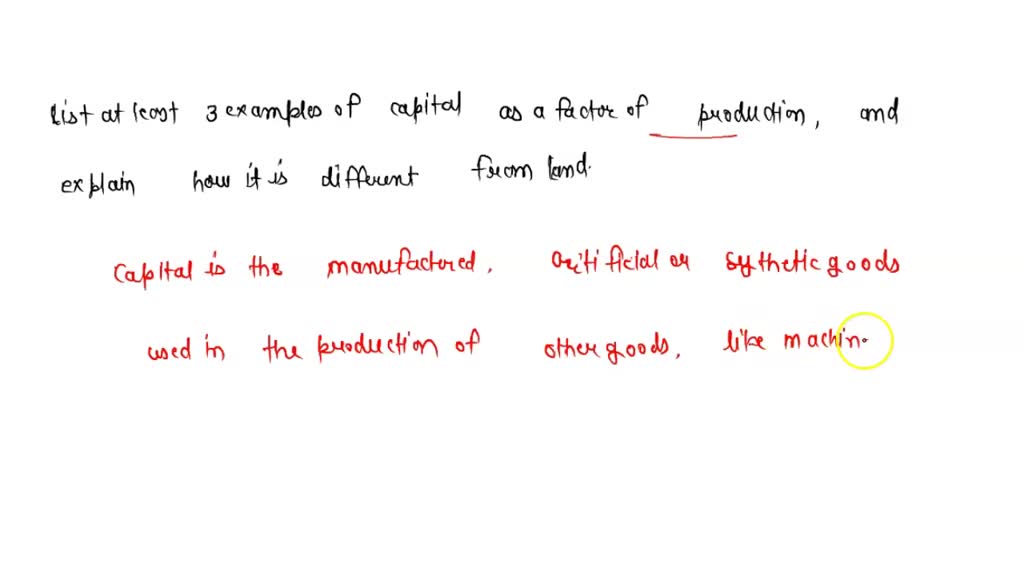 List at least 3 examples of capital as a factor of production, and
explain how it is different from land.
Capital is the manufactored, artificial or sythetic goods
used in the production of other goods, like machin